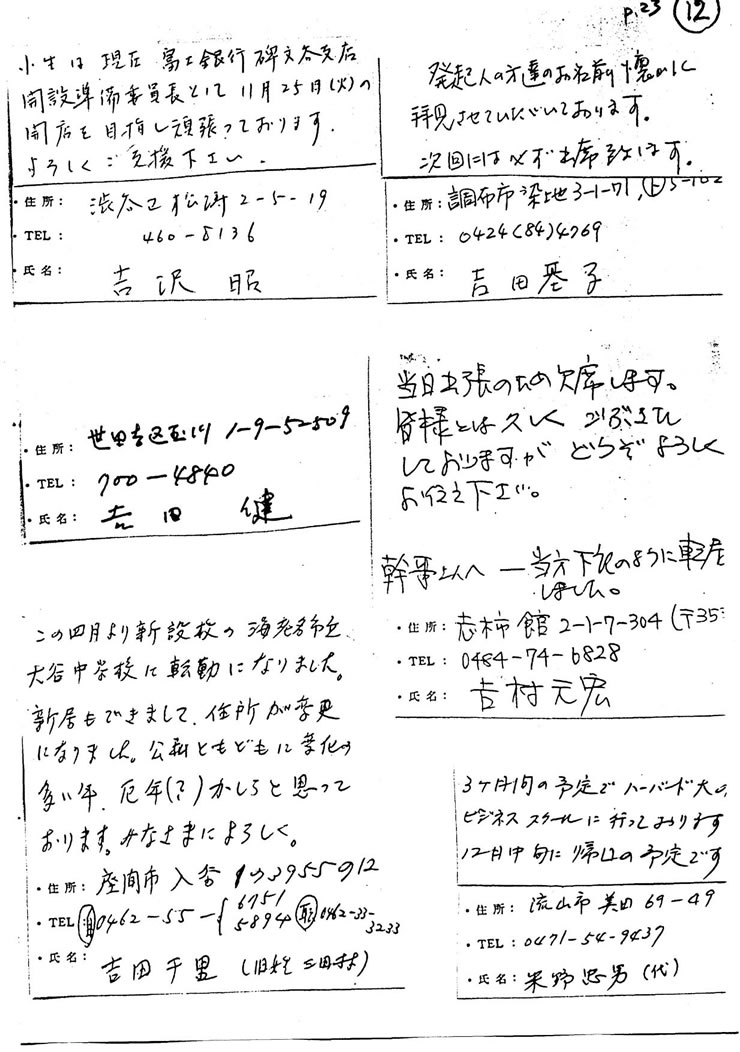 p.23 ⑫
小生は 現在 富士銀行 碑文谷支店
開設準備委員長として 11月25日(火)の
開店を目指し頑張っております.
よろしくご支援下さい.
・住所: 渋谷区松涛 2-5-19
・TEL: 460-8136
・氏名: 吉沢 昭
発起人の方達のお名前 懐かしく
拝見させていただいております。
次回には必ず出席致します。
・住所: 調布市染地3-1-71,
・TEL: 0424(84)4769
・氏名: 吉田基子
・住所: 世田谷区玉川 1-9-5
・TEL: 700-4840
・氏名: 吉田 健
当日出張のため欠席します。
皆様とは久しく ごぶさた
しておりますが どうぞ よろしく
お伝え下さい。
幹事さんへ ― 当方下記のように転居
しました。
・住所: 志木市館 2-1-7-304 (〒35
・TEL: 0484-74-6828
・氏名: 吉村元宏
この四月より新設校の 海老名市立
大谷中学校に転勤になりました。
新居もできまして、住所が変更
になりました。公私ともどもに変化の
多い年、厄年(?)かしらと思って
おります。みなさまによろしく。
・住所: 座間市入谷
・TEL 0462-55-{6751
5894 0462-33-
3233
・氏名: 吉田千里 (旧姓 三田村)
3ヶ月間の予定で ハーバード大の
ビジネス スクールに 行っております
12月中旬に帰国の予定です
・住所: 流山市 美田 69-49
・TEL: 0471-54-9437
・氏名: 米野忠男 (代)